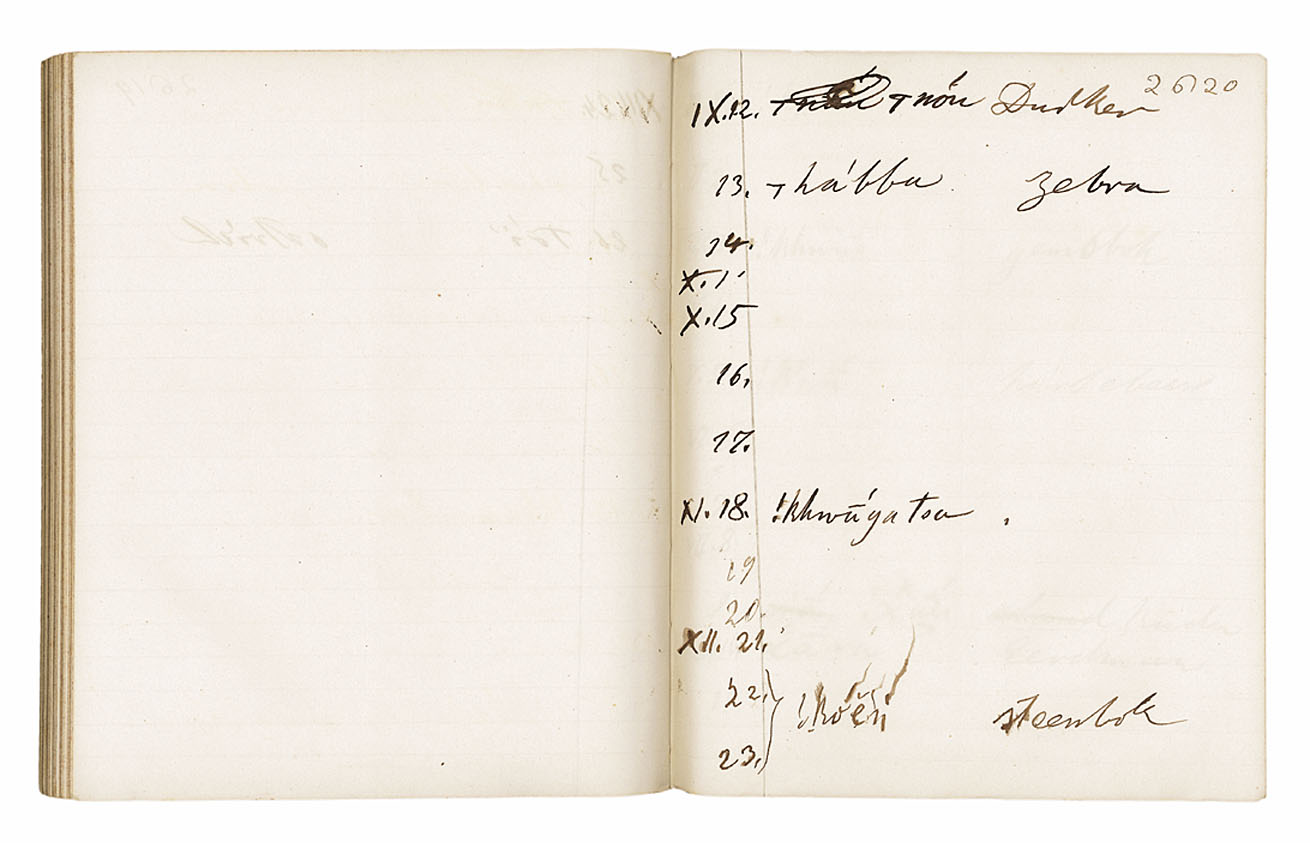 2620
IX.12. ┬nón Duiker
13. ┬hábba zebra
14.
X.1
X.15
16.
17.
XI.18. !khwāga tsa .
19
20.
XII. 21.
22.
steenbok
23.